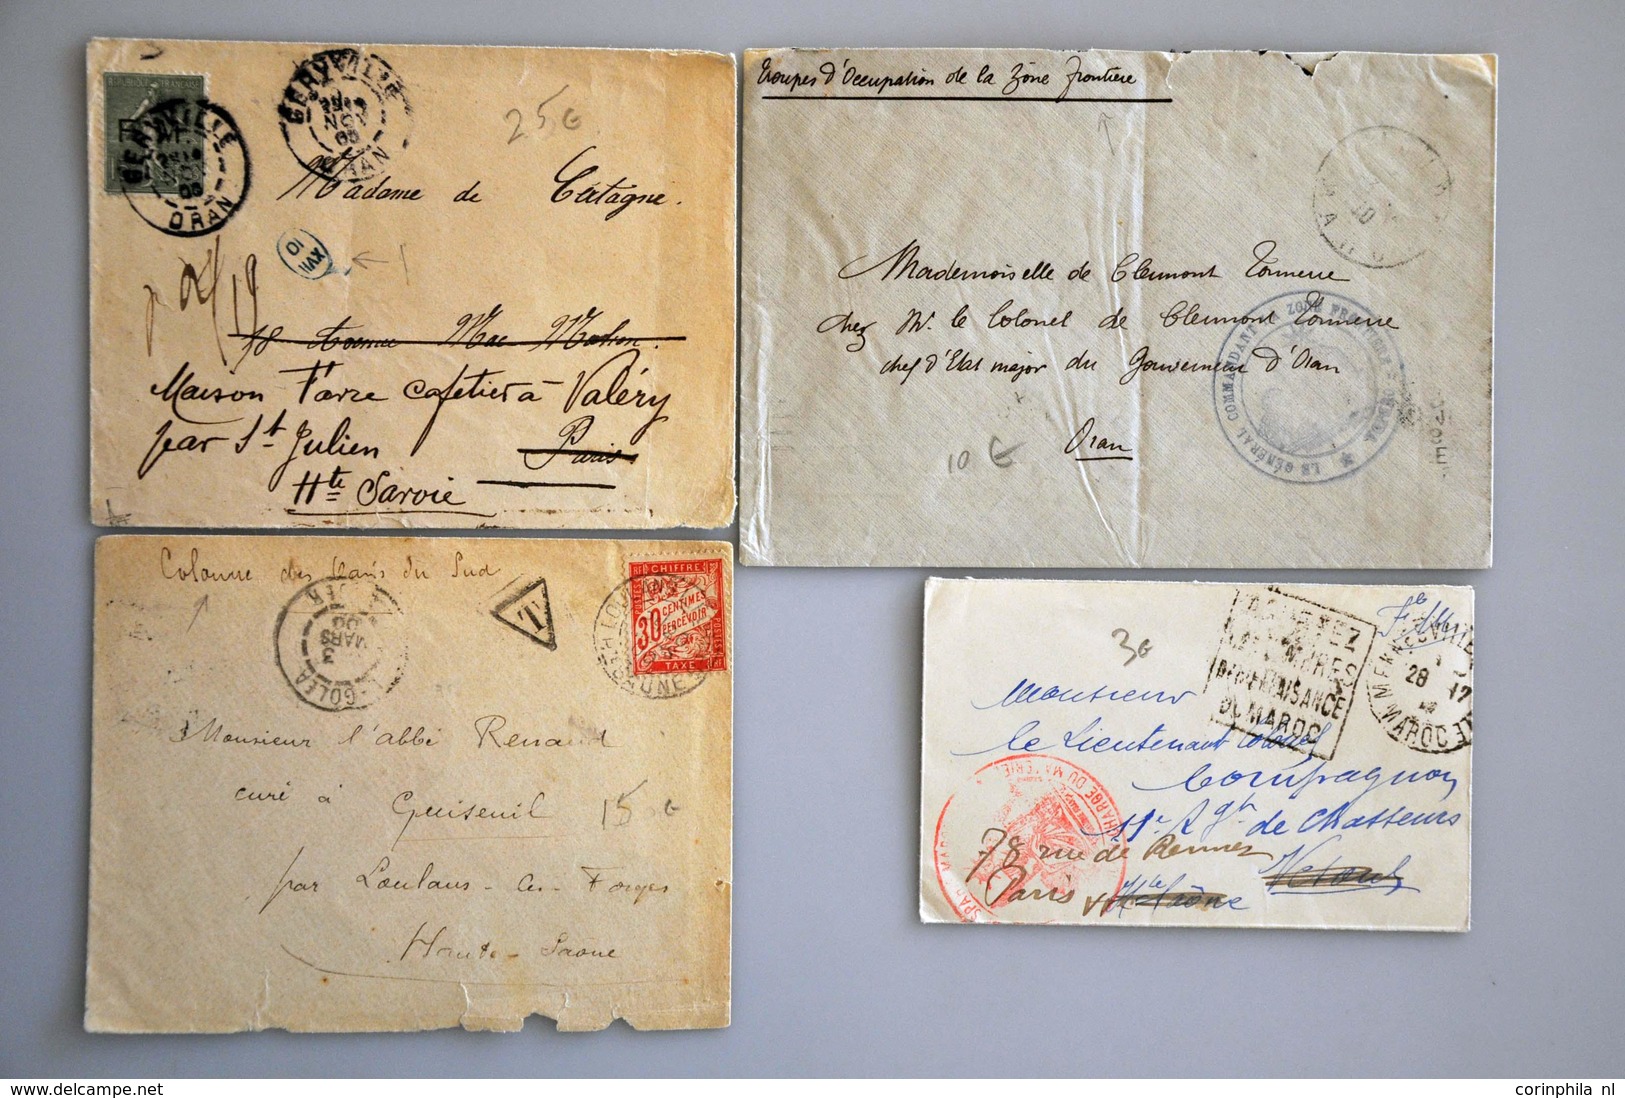 GERYVILLE
ORAN
F. M.
GERYVILLE
NOV
ORAN
25€
Madame de Certagne.
XVII
10
18 Avenue Mac Mahon.
Maison Favre cafetier à Valéry
par St Julien
Paris
Hte Savoie
Troupes d'Occupation de la Zone Frontière
Mademoiselle de Clermont Tonnerre
chez Mr. le Colonel de Clermont Tonnerre
chef d'Etat major du Gouverneur d'Oran
Oran
10 €
LE GÉNÉRAL COMMANDANT LA ZONE FRONTIÈRE OUDJDA
Colonne des Oasis du Sud
EL-GOLEA
3
MARS
ALGER
T
RF CHIFFRE
POSTES
30
CENTIMES
A PERCEVOIR
TAXE
Monsieur l'abbé Renaud
curé à Guiseuil
15 €
par Loulans-les-Forges
Haute-Saône
3€
ACHETEZ
LES TIMBRES
DE BIENFAISANCE
DU MAROC
28 - 12
MAROC
CHARGE DU MATERIEL
Monsieur
le Lieutenant Colonel
Compagnon
11e Rgt de Chasseurs
78 rue de Rennes
Vesoul
Paris VI
Hte Saône
corinphila nl